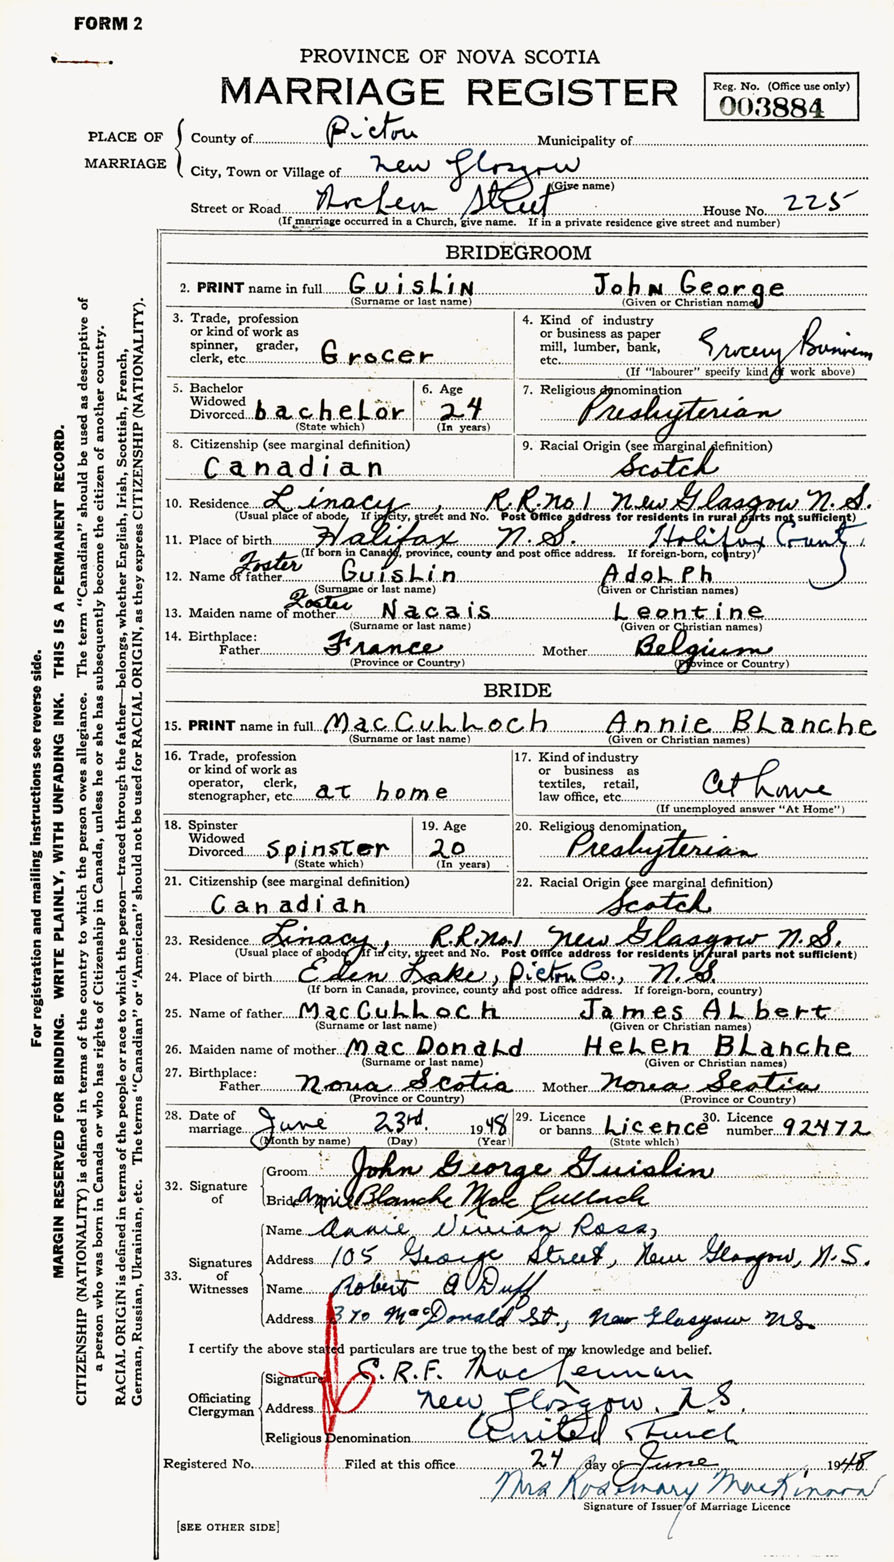 FORM 2
PROVINCE OF NOVA SCOTIA
MARRIAGE REGISTER
Reg. No. (Office use only)
003884
PLACE OF MARRIAGE
County of Pictou Municipality of
City, Town or Village of New Glasgow
(Give name)
Street or Road MacLean Street House No. 225
(If marriage occurred in a Church, give name. If in a private residence give street and number)
BRIDEGROOM
2. PRINT name in full Guislin John George
(Surname or last name) (Given or Christian name)
3. Trade, profession or kind of work as spinner, grader, clerk, etc. Grocer
4. Kind of industry or business as paper mill, lumber, bank, etc. Grocery Business
(If "labourer" specify kind of work above)
5. Bachelor Widowed Divorced bachelor
(State which)
6. Age 24
(In years)
7. Religious denomination
Presbyterian
8. Citizenship (see marginal definition)
Canadian
9. Racial Origin (see marginal definition)
Scotch
10. Residence Linacy, R.R. no 1 New Glasgow N.S.
(Usual place of abode. If in city, street and No. Post Office address for residents in rural parts not sufficient)
11. Place of birth Halifax N.S. Halifax County
(If born in Canada, province, county and post office address. If foreign-born, country)
Foster
12. Name of father Guislin Adolph
(Surname or last name) (Given or Christian names)
Foster
13. Maiden name of mother Nacais Leontine
(Surname or last name) (Given or Christian names)
14. Birthplace:
Father France Mother Belgium
(Province or Country) (Province or Country)
BRIDE
15. PRINT name in full MacCulloch Annie Blanche
(Surname or last name) (Given or Christian names)
16. Trade, profession or kind of work as operator, clerk, stenographer, etc. at home
17. Kind of industry or business as textiles, retail, law office, etc. At home
(If unemployed answer "At Home")
18. Spinster Widowed Divorced Spinster
(State which)
19. Age 20
(In years)
20. Religious denomination
Presbyterian
21. Citizenship (see marginal definition)
Canadian
22. Racial Origin (see marginal definition)
Scotch
23. Residence Linacy, R.R. no.1 New Glasgow N.S.
(Usual place of abode. If in city, street and No. Post Office address for residents in rural parts not sufficient)
24. Place of birth Eden Lake, Pictou Co., N.S.
(If born in Canada, province, county and post office address. If foreign-born, country)
25. Name of father MacCulloch James Albert
(Surname or last name) (Given or Christian names)
26. Maiden name of mother MacDonald Helen Blanche
(Surname or last name) (Given or Christian names)
27. Birthplace:
Father Nova Scotia Mother Nova Scotia
(Province or Country) (Province or Country)
28. Date of marriage June 23rd. 1948
(Month by name) (Day) (Year)
29. Licence or banns Licence
(State which)
30. Licence number 92472
32. Signature of
Groom John George Guislin
Bride Annie Blanche MacCulloch
33. Signatures of Witnesses
Name Annie Vivian Ross,
Address 105 George Street, New Glasgow, N.S.
Name Robert A Duff
Address 370 MacDonald St., New Glasgow NS.
I certify the above stated particulars are true to the best of my knowledge and belief.
Officiating Clergyman
Signature C.R.F. MacLennan
Address New Glasgow, N.S.
Religious Denomination United Church
Registered No. Filed at this office 24 day of June 1948
Mrs Rosemary MacKinnon
Signature of Issuer of Marriage Licence
[SEE OTHER SIDE]
For registration and mailing instructions see reverse side.
MARGIN RESERVED FOR BINDING. WRITE PLAINLY, WITH UNFADING INK. THIS IS A PERMANENT RECORD.
CITIZENSHIP (NATIONALITY) is defined in terms of the country to which the person owes allegiance. The term "Canadian" should be used as descriptive of
a person who was born in Canada or who has rights of Citizenship in Canada, unless he or she has subsequently become the citizen of another country.
RACIAL ORIGIN is defined in terms of the people or race to which the person—traced through the father—belongs, whether English, Irish, Scottish, French,
German, Russian, Ukrainian, etc. The terms "Canadian" or "American" should not be used for RACIAL ORIGIN, as they express CITIZENSHIP (NATIONALITY).